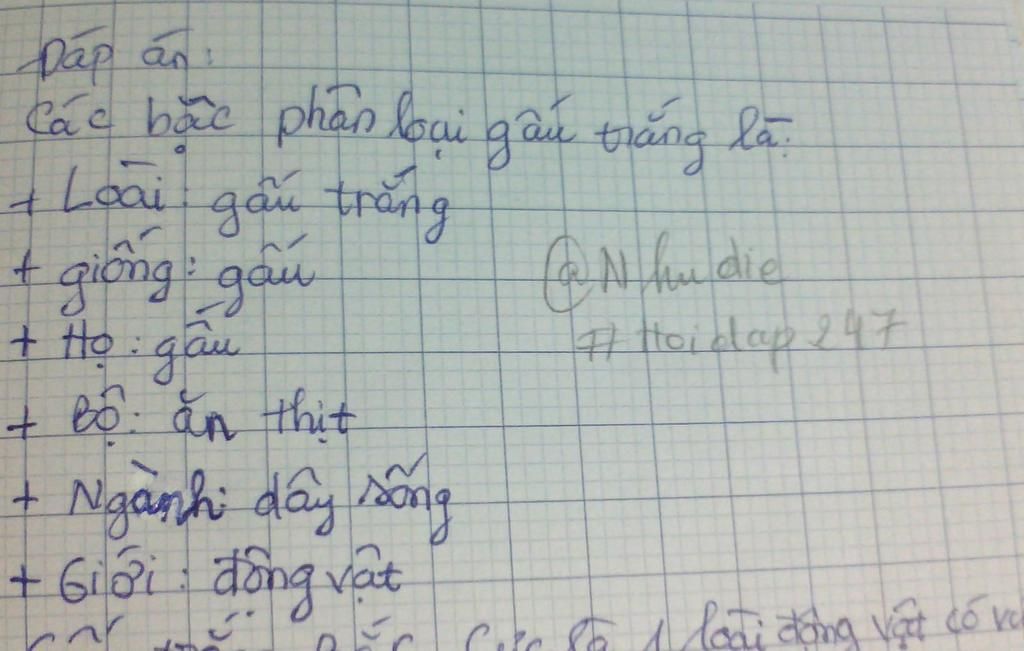 Đáp án:
Các bậc phân loại gấu trắng là:
+ Loài: gấu trắng
+ giống: gấu
@Nhudie
+ Họ: gấu
#Hoidap247
+ Bộ: ăn thịt
+ Ngành: dây sống
+ Giới: động vật
là 1 loài động vật có